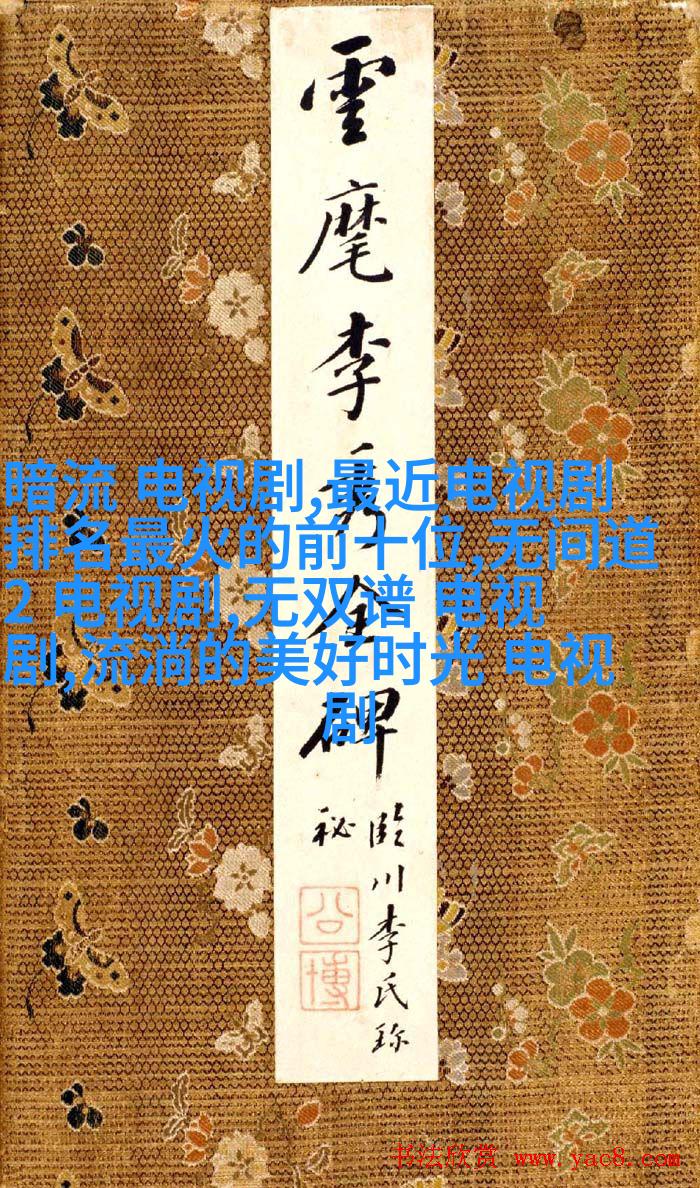 雲麾李秀全碑
臨川李氏珎
秘
公博
暗流 电视剧,最近电视剧
排名最火的前十位,无间道
2 电视剧,无双谱 电视
剧,流淌的美好时光 电视
剧
书法欣赏 www.yac8.com